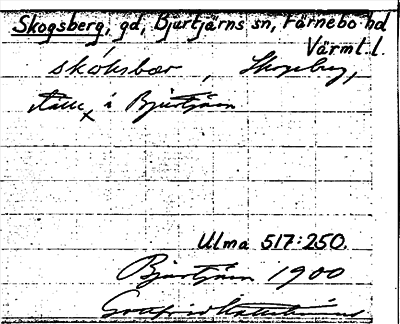 Skogsberg, gd, Bjurtjärns sn, Färnebo hd
Värml. l.
skóksbær , Skogsberg,
ställe i Bjurtjärn
Ulma 517:250.
Bjurtjärn 1900
Gottfrid Kallstenius